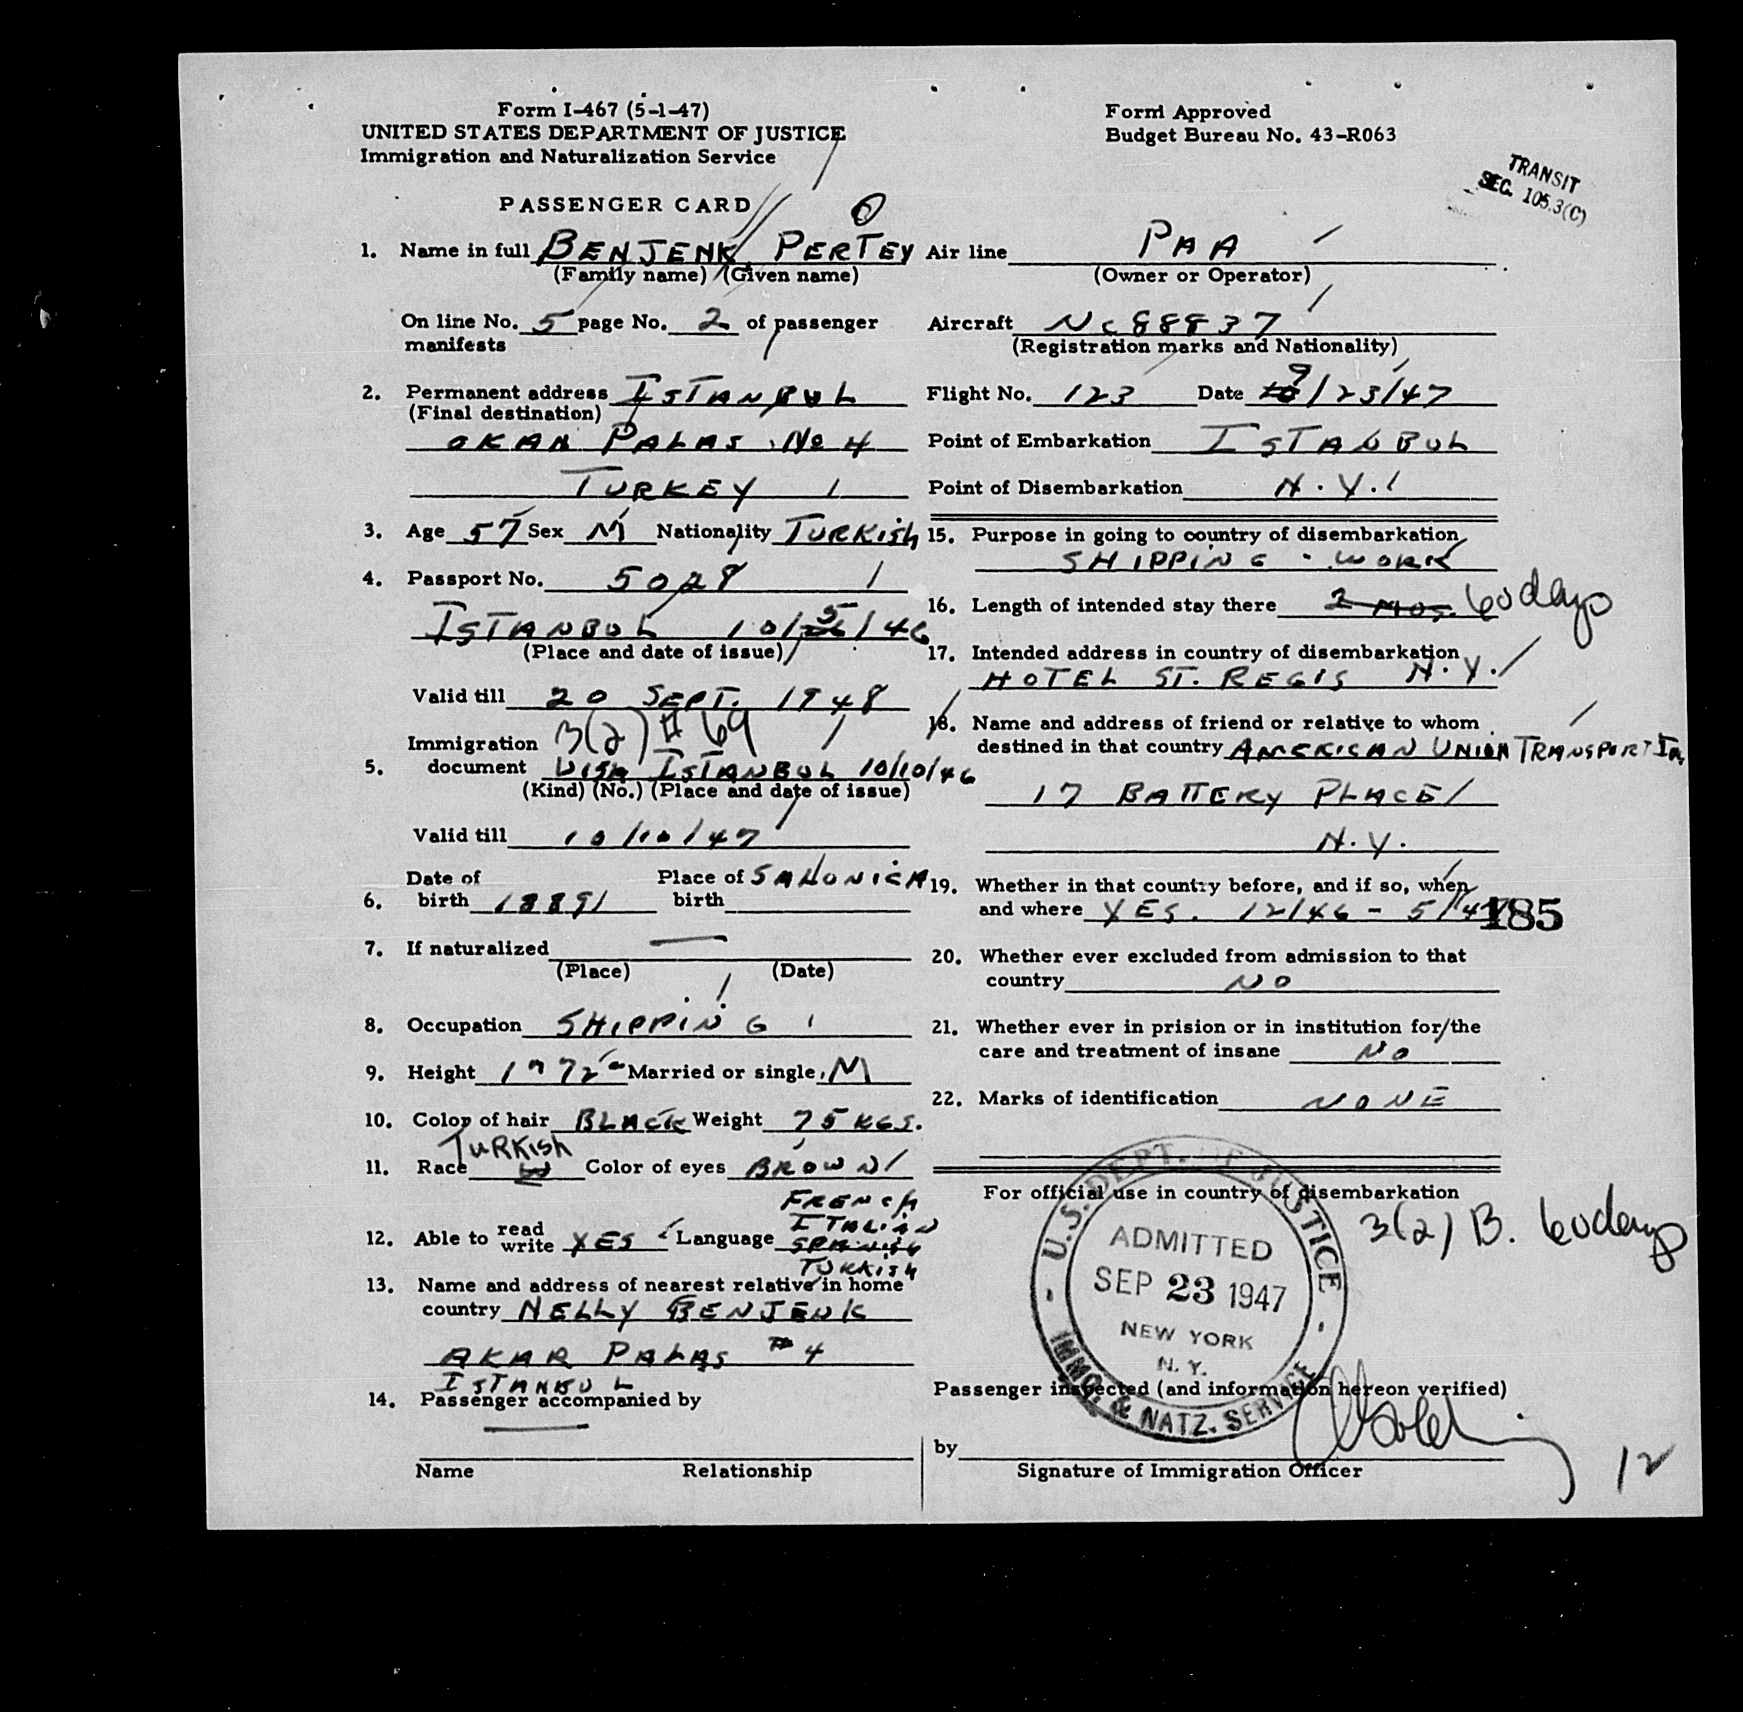 Form I-467 (5-1-47)
UNITED STATES DEPARTMENT OF JUSTICE
Immigration and Naturalization Service
Form Approved
Budget Bureau No. 43-R063
TRANSIT
SEC. 105.3(C)
PASSENGER CARD
1. Name in full BENJENK PERTEY
(Family name) (Given name)
On line No. 5 page No. 2 of passenger
manifests
2. Permanent address ISTANBUL
(Final destination)
AKAR PALAS No 4
TURKEY
3. Age 57 Sex M Nationality TURKISH
4. Passport No. 5028
ISTANBUL 10/5/46
(Place and date of issue)
Valid till 20 SEPT. 1948
3(2) # 69
Immigration
5. document VISA ISTANBUL 10/10/46
(Kind) (No.) (Place and date of issue)
Valid till 10/10/47
Date of Place of SALONICA
6. birth 1889 birth
7. If naturalized —
(Place) (Date)
8. Occupation SHIPPING
9. Height 1 m 72 Married or single M
10. Color of hair BLACK Weight 75 KGS.
TURKISH
11. Race W Color of eyes BROWN
FRENCH
ITALIAN
12. Able to read write YES Language SPANISH
TURKISH
13. Name and address of nearest relative in home
country NELLY BENJENK
AKAR PALAS #4
ISTANBUL
14. Passenger accompanied by
—
Name Relationship
Air line PAA
(Owner or Operator)
Aircraft NC88837
(Registration marks and Nationality)
Flight No. 123 Date 9/23/47
Point of Embarkation ISTANBUL
Point of Disembarkation N.Y.
15. Purpose in going to country of disembarkation
SHIPPING - WORK
16. Length of intended stay there 2 MOS. 60 days
17. Intended address in country of disembarkation
HOTEL ST. REGIS N.Y.
18. Name and address of friend or relative to whom
destined in that country AMERICAN UNION TRANSPORT
17 BATTERY PLACE
N.Y.
19. Whether in that country before, and if so, when
and where YES. 12/46 - 5/47
185
20. Whether ever excluded from admission to that
country NO
21. Whether ever in prision or in institution for the
care and treatment of insane NO
22. Marks of identification NONE
For official use in country of disembarkation
3(2) B. 60 days
U.S. DEPT. OF JUSTICE
ADMITTED
SEP 23 1947
NEW YORK
N. Y.
IMMG. & NATZ. SERVICE
Passenger inspected (and information hereon verified)
by
Signature of Immigration Officer
12